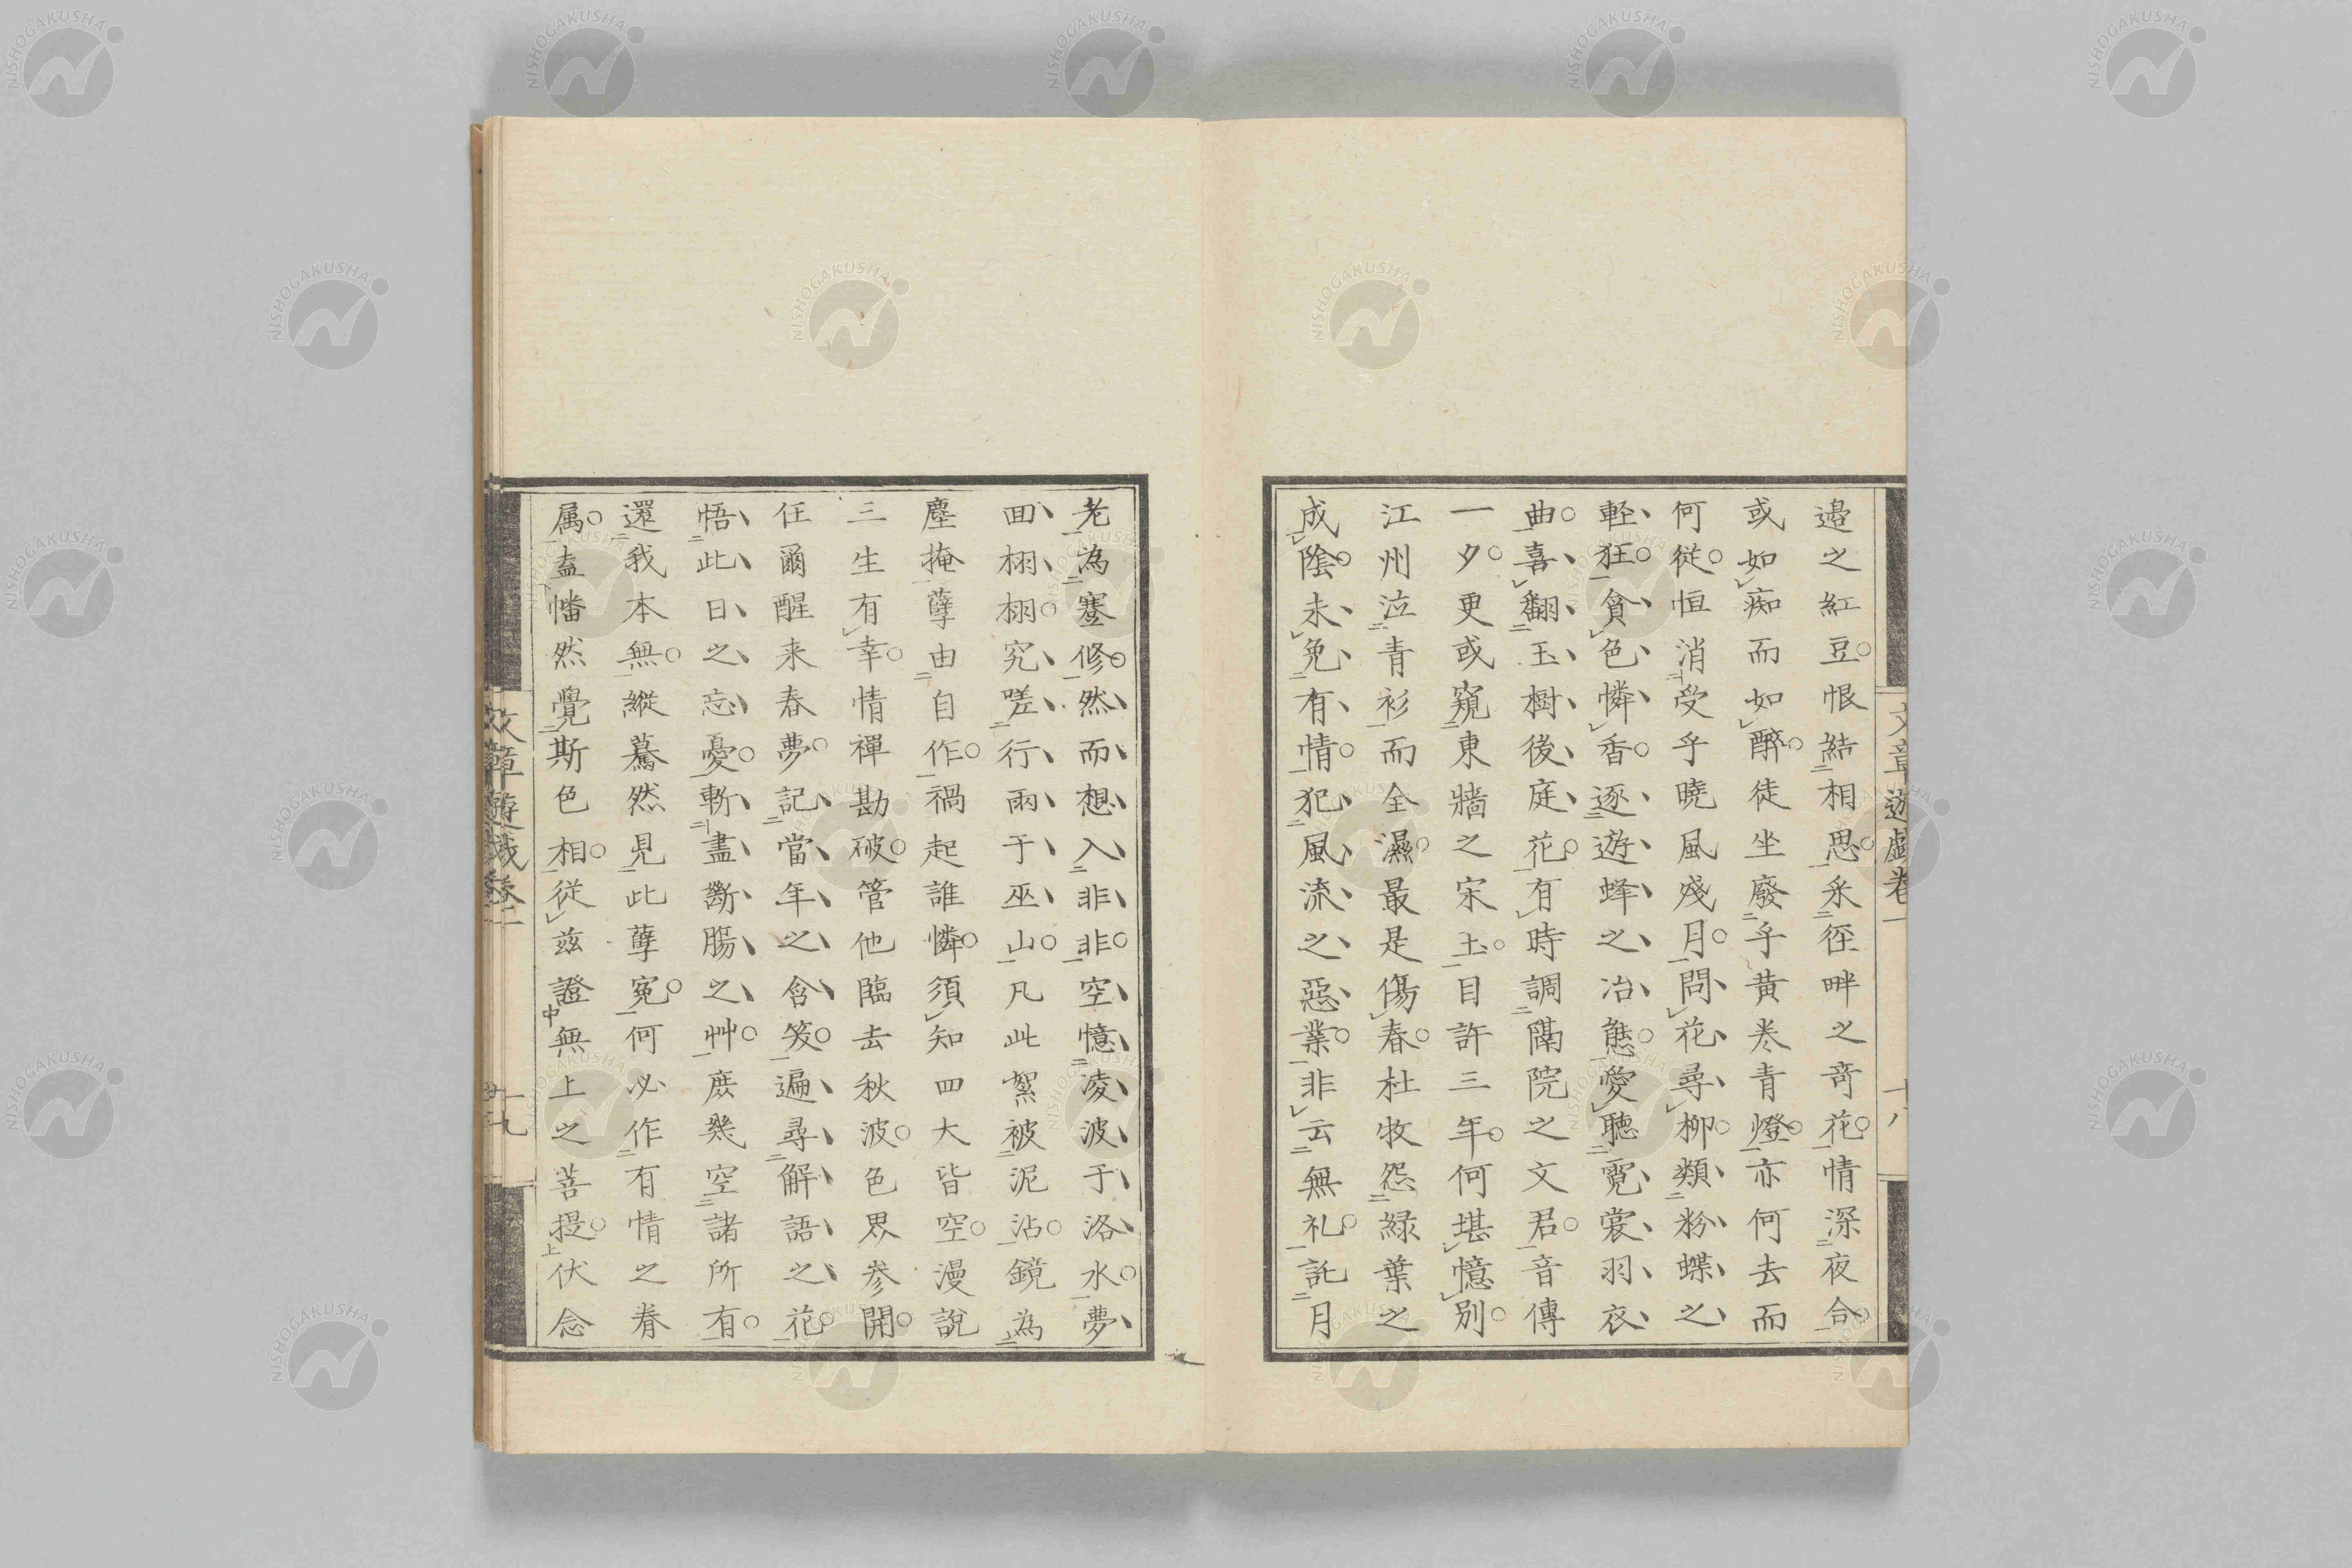 邉之紅豆。恨結相思。采徑畔之奇花。情深夜合。
或如痴而如醉。徒坐廢乎黄卷青燈。亦何去而
何從。恒消受乎曉風殘月。問花尋柳。類粉蝶之
輕狂。貪色憐香。逐遊蜂之冶態。愛聽霓裳羽衣
曲。喜翻玉樹後庭花。有時調隔院之文君。音傳
一夕。更或窺東牆之宋玉。目許三年。何堪憶別。
江州泣青衫而全濕。最是傷春。杜牧怨緑葉之
成陰。未免有情。犯風流之惡業。非云無礼。託月
老為蹇修。然而想入非非。空憶凌波于洛水。夢
回栩栩。究嗟行雨于巫山。凡此絮被泥沾。鏡為
塵掩。孽由自作。禍起誰憐。須知四大皆空。漫說
三生有幸。情禪勘破。管他臨去秋波。色界参開。
任爾醒来春夢。記當年之含笑。遍尋解語之花。
悟此日之忘憂。斬盡斷腸之艸。庶幾空諸所有。
還我本無。縱驀然見此孽冤。何必作有情之眷
属。盍幡然覺斯色相。從茲證無上之菩提。伏念
文章遊戲卷一
十八
文章遊戲卷一
十九
NISHOGAKUSHA